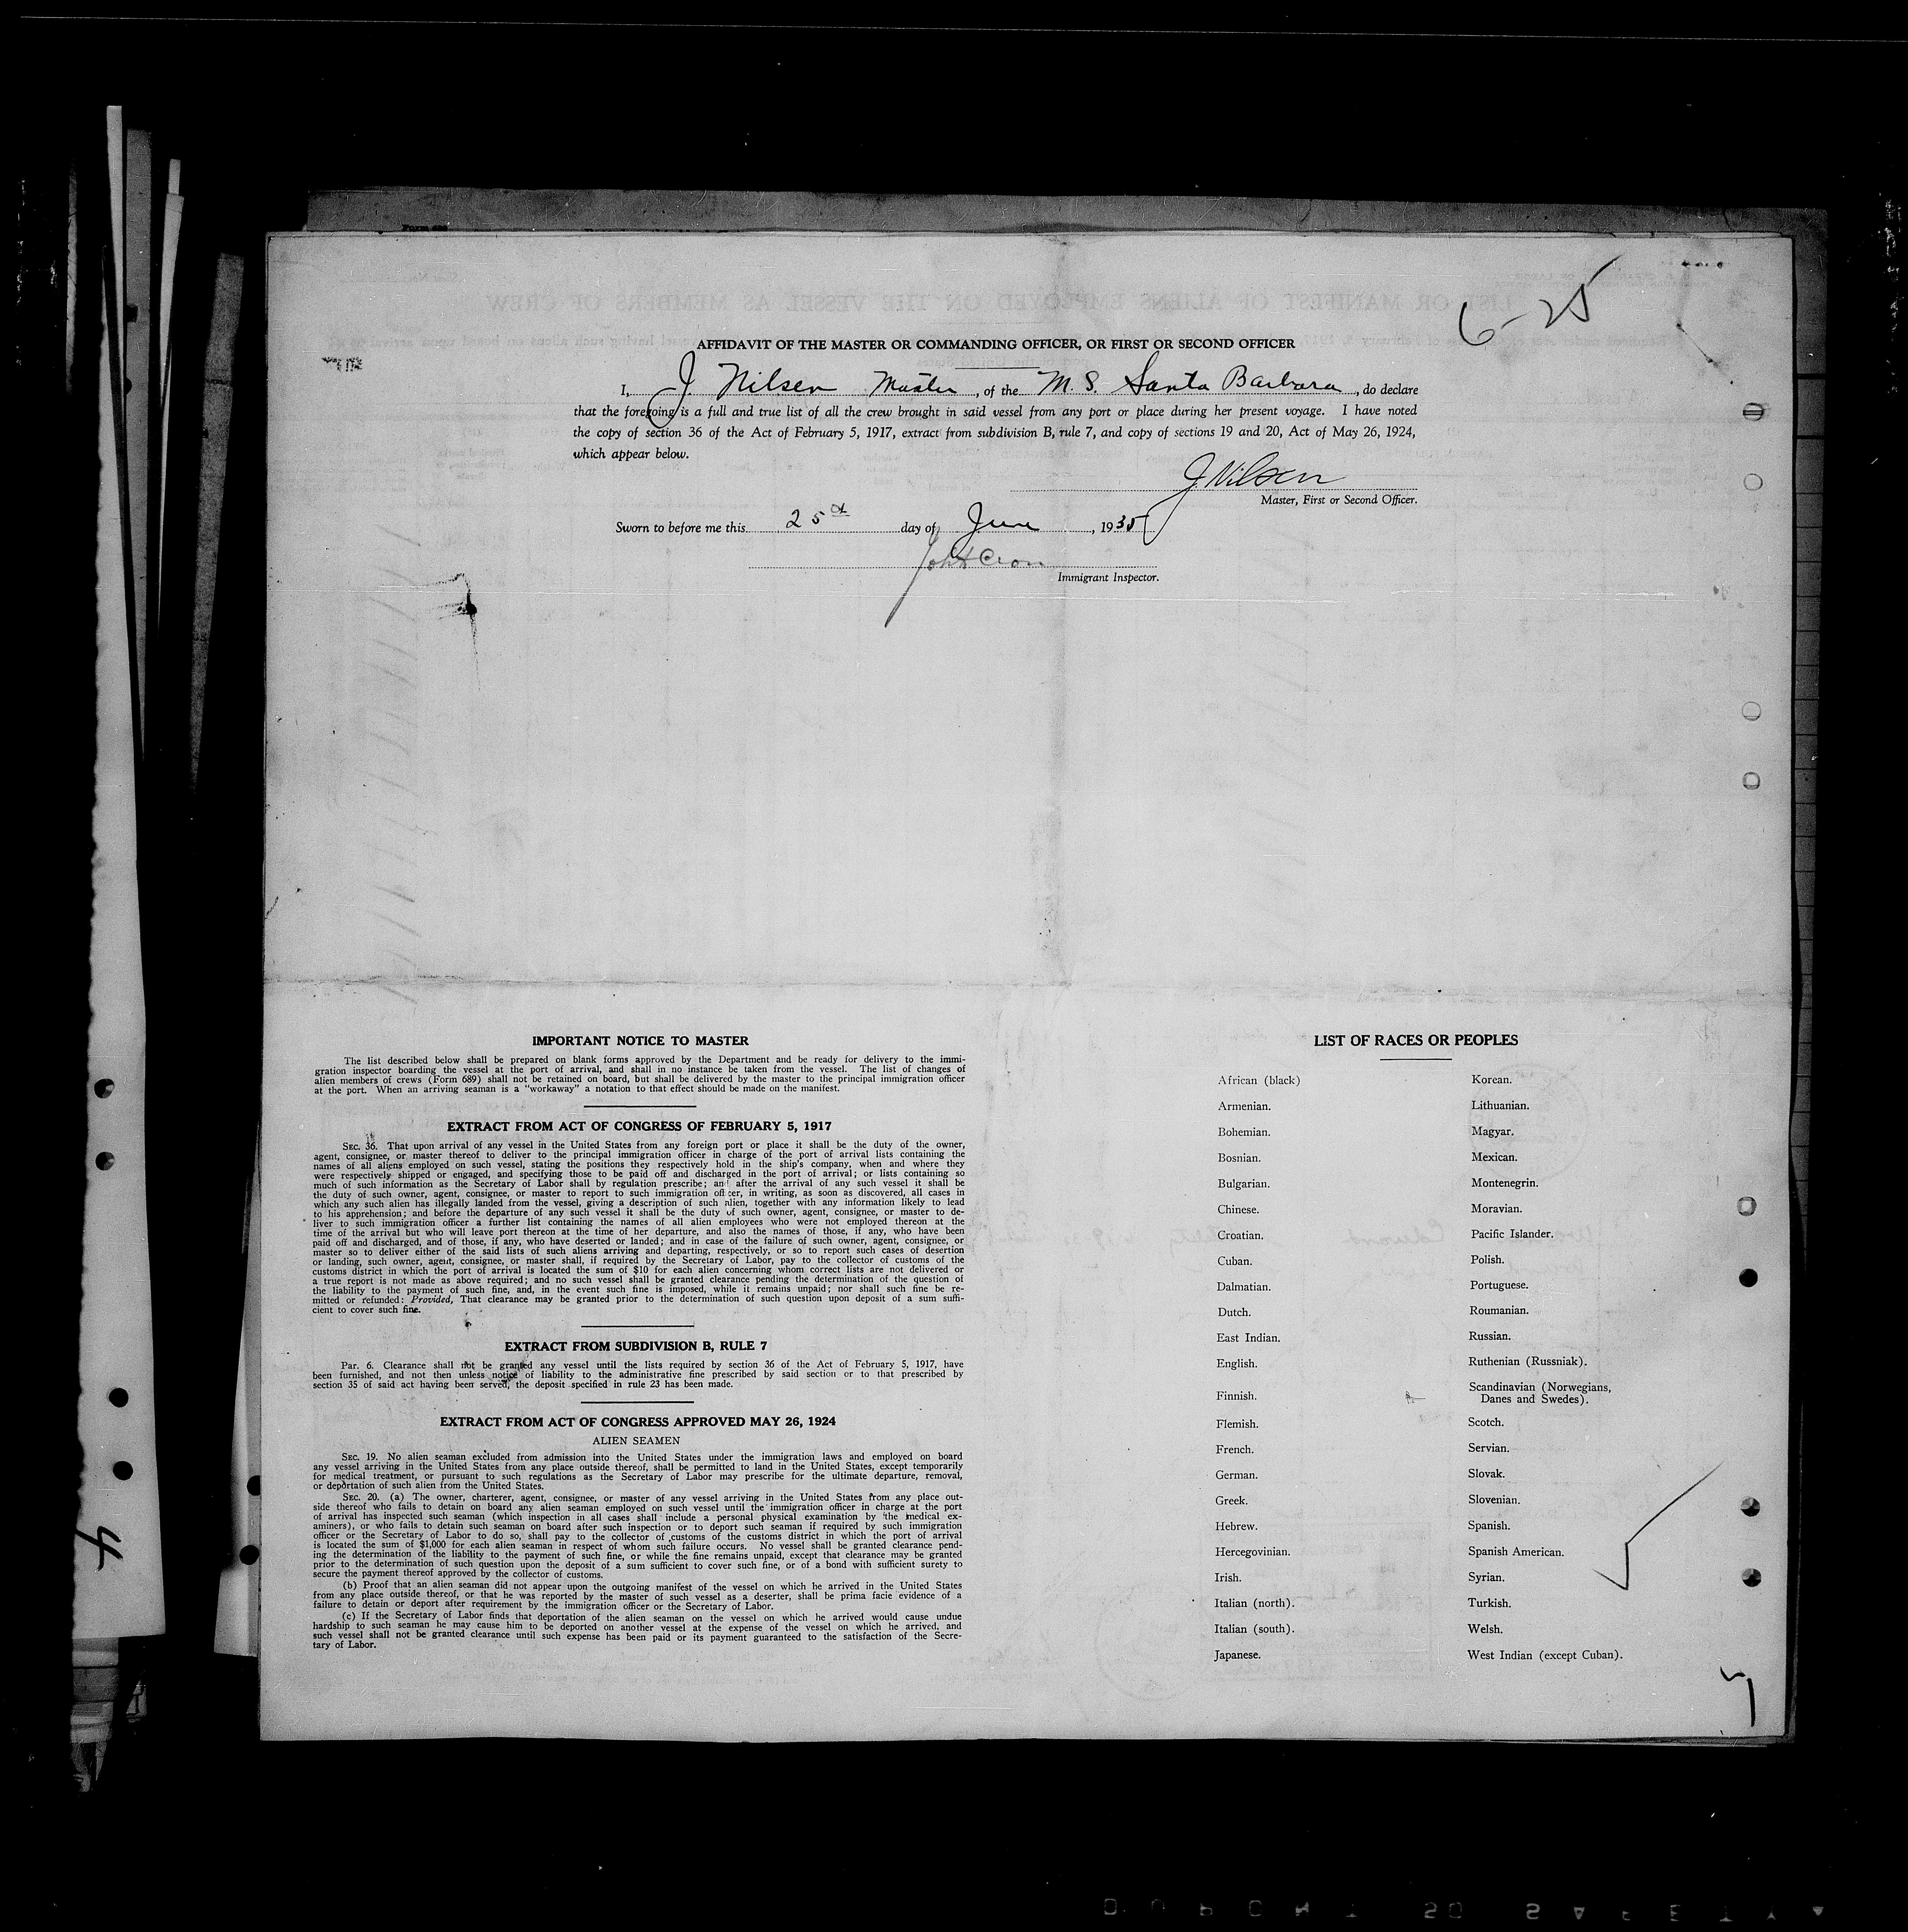 6-25
AFFIDAVIT OF THE MASTER OR COMMANDING OFFICER, OR FIRST OR SECOND OFFICER
I, J. Nilsen Master, of the M. S. Santa Barbara, do declare
that the foregoing is a full and true list of all the crew brought in said vessel from any port or place during her present voyage. I have noted
the copy of section 36 of the Act of February 5, 1917, extract from subdivision B, rule 7, and copy of sections 19 and 20, Act of May 26, 1924,
which appear below.
J. Nilsen
Master, First or Second Officer.
Sworn to before me this 25th day of June, 1935
Immigrant Inspector.
IMPORTANT NOTICE TO MASTER
The list described below shall be prepared on blank forms approved by the Department and be ready for delivery to the immi-
gration inspector boarding the vessel at the port of arrival, and shall in no instance be taken from the vessel. The list of changes of
alien members of crews (Form 689) shall not be retained on board, but shall be delivered by the master to the principal immigration officer
at the port. When an arriving seaman is a "workaway" a notation to that effect should be made on the manifest.
EXTRACT FROM ACT OF CONGRESS OF FEBRUARY 5, 1917
SEC. 36. That upon arrival of any vessel in the United States from any foreign port or place it shall be the duty of the owner,
agent, consignee, or master thereof to deliver to the principal immigration officer in charge of the port of arrival lists containing the
names of all aliens employed on such vessel, stating the positions they respectively hold in the ship's company, when and where they
were respectively shipped or engaged, and specifying those to be paid off and discharged in the port of arrival; or lists containing so
much of such information as the Secretary of Labor shall by regulation prescribe; and after the arrival of any such vessel it shall be
the duty of such owner, agent, consignee, or master to report to such immigration officer, in writing, as soon as discovered, all cases in
which any such alien has illegally landed from the vessel, giving a description of such alien, together with any information likely to lead
to his apprehension; and before the departure of any such vessel it shall be the duty of such owner, agent, consignee, or master to de-
liver to such immigration officer a further list containing the names of all alien employees who were not employed thereon at the
time of the arrival but who will leave port thereon at the time of her departure, and also the names of those, if any, who have been
paid off and discharged, and of those, if any, who have deserted or landed; and in case of the failure of such owner, agent, consignee, or
master so to deliver either of the said lists of such aliens arriving and departing, respectively, or so to report such cases of desertion
or landing, such owner, agent, consignee, or master shall, if required by the Secretary of Labor, pay to the collector of customs of the
customs district in which the port of arrival is located the sum of $10 for each alien concerning whom correct lists are not delivered or
a true report is not made as above required; and no such vessel shall be granted clearance pending the determination of the question of
the liability to the payment of such fine, and, in the event such fine is imposed, while it remains unpaid; nor shall such fine be re-
mitted or refunded: Provided, That clearance may be granted prior to the determination of such question upon deposit of a sum suffi-
cient to cover such fine.
EXTRACT FROM SUBDIVISION B, RULE 7
Par. 6. Clearance shall not be granted any vessel until the lists required by section 36 of the Act of February 5, 1917, have
been furnished, and not then unless notice of liability to the administrative fine prescribed by said section or to that prescribed by
section 35 of said act having been served, the deposit specified in rule 23 has been made.
EXTRACT FROM ACT OF CONGRESS APPROVED MAY 26, 1924
ALIEN SEAMEN
SEC. 19. No alien seaman excluded from admission into the United States under the immigration laws and employed on board
any vessel arriving in the United States from any place outside thereof, shall be permitted to land in the United States, except temporarily
for medical treatment, or pursuant to such regulations as the Secretary of Labor may prescribe for the ultimate departure, removal,
or deportation of such alien from the United States.
SEC. 20. (a) The owner, charterer, agent, consignee, or master of any vessel arriving in the United States from any place out-
side thereof who fails to detain on board any alien seaman employed on such vessel until the immigration officer in charge at the port
of arrival has inspected such seaman (which inspection in all cases shall include a personal physical examination by the medical ex-
aminers), or who fails to detain such seaman on board after such inspection or to deport such seaman if required by such immigration
officer or the Secretary of Labor to do so, shall pay to the collector of customs of the customs district in which the port of arrival
is located the sum of $1,000 for each alien seaman in respect of whom such failure occurs. No vessel shall be granted clearance pend-
ing the determination of the liability to the payment of such fine, or while the fine remains unpaid, except that clearance may be granted
prior to the determination of such question upon the deposit of a sum sufficient to cover such fine, or of a bond with sufficient surety to
secure the payment thereof approved by the collector of customs.
(b) Proof that an alien seaman did not appear upon the outgoing manifest of the vessel on which he arrived in the United States
from any place outside thereof, or that he was reported by the master of such vessel as a deserter, shall be prima facie evidence of a
failure to detain or deport after requirement by the immigration officer or the Secretary of Labor.
(c) If the Secretary of Labor finds that deportation of the alien seaman on the vessel on which he arrived would cause undue
hardship to such seaman he may cause him to be deported on another vessel at the expense of the vessel on which he arrived, and
such vessel shall not be granted clearance until such expense has been paid or its payment guaranteed to the satisfaction of the Secre-
tary of Labor.
LIST OF RACES OR PEOPLES
African (black)
Armenian.
Bohemian.
Bosnian.
Bulgarian.
Chinese.
Croatian.
Cuban.
Dalmatian.
Dutch.
East Indian.
English.
Finnish.
Flemish.
French.
German.
Greek.
Hebrew.
Hercegovinian.
Irish.
Italian (north).
Italian (south).
Japanese.
Korean.
Lithuanian.
Magyar.
Mexican.
Montenegrin.
Moravian.
Pacific Islander.
Polish.
Portuguese.
Roumanian.
Russian.
Ruthenian (Russniak).
Scandinavian (Norwegians,
Danes and Swedes).
Scotch.
Servian.
Slovak.
Slovenian.
Spanish.
Spanish American.
Syrian.
Turkish.
Welsh.
West Indian (except Cuban).
4
DUPONT SO SAFETY